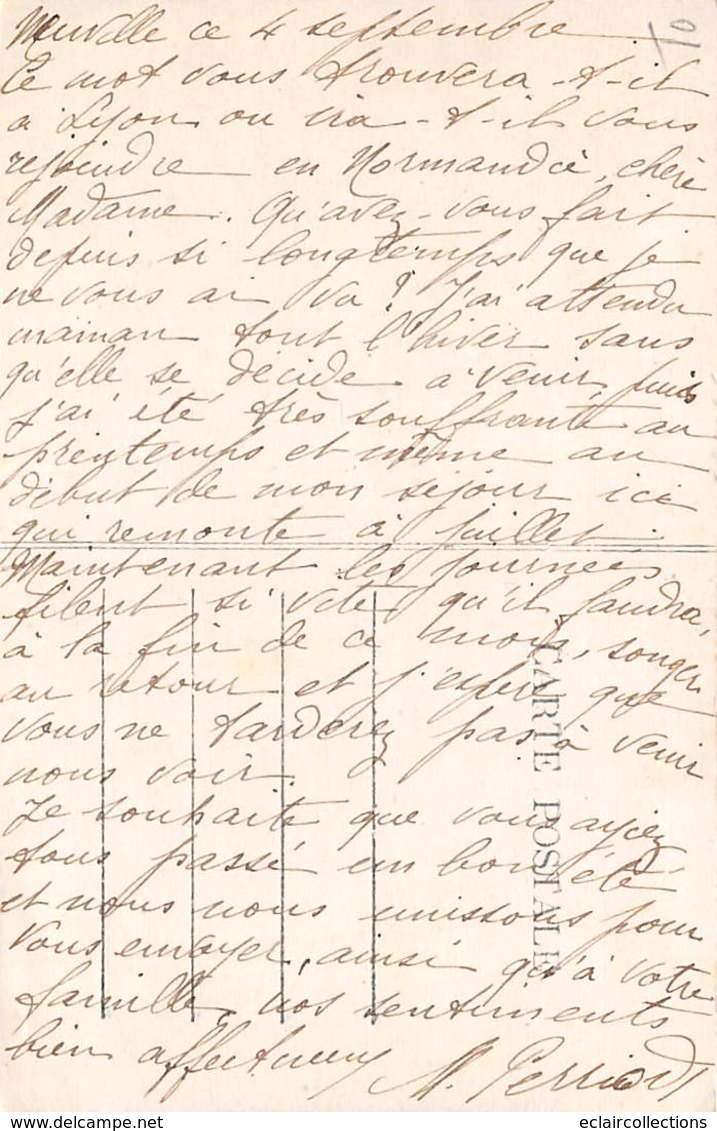 Neuville ce 4 septembre
Ce mot vous trouvera-t-il
à Lyon ou ira-t-il vous
rejoindre en Normandie, chère
Madame. Qu'avez-vous fait
depuis si longtemps que je
ne vous ai vu? J'ai attendu
maman tout l'hiver sans
qu'elle se décide à venir, puis
j'ai été très souffrante au
printemps et même au
début de mon séjour ici
qui remonte à Juillet.
Maintenant les journées
filent si vite qu'il faudra,
à la fin de ce mois, songer
au retour et j'espère que
vous ne tarderez pas à venir
nous voir.
Je souhaite que vous ayiez
tous passé un bon été
et nous nous unissons pour
vous envoyer, ainsi qu'à votre
famille, nos sentiments
bien affectueux
CARTE POSTALE
10
eclaircollections.com